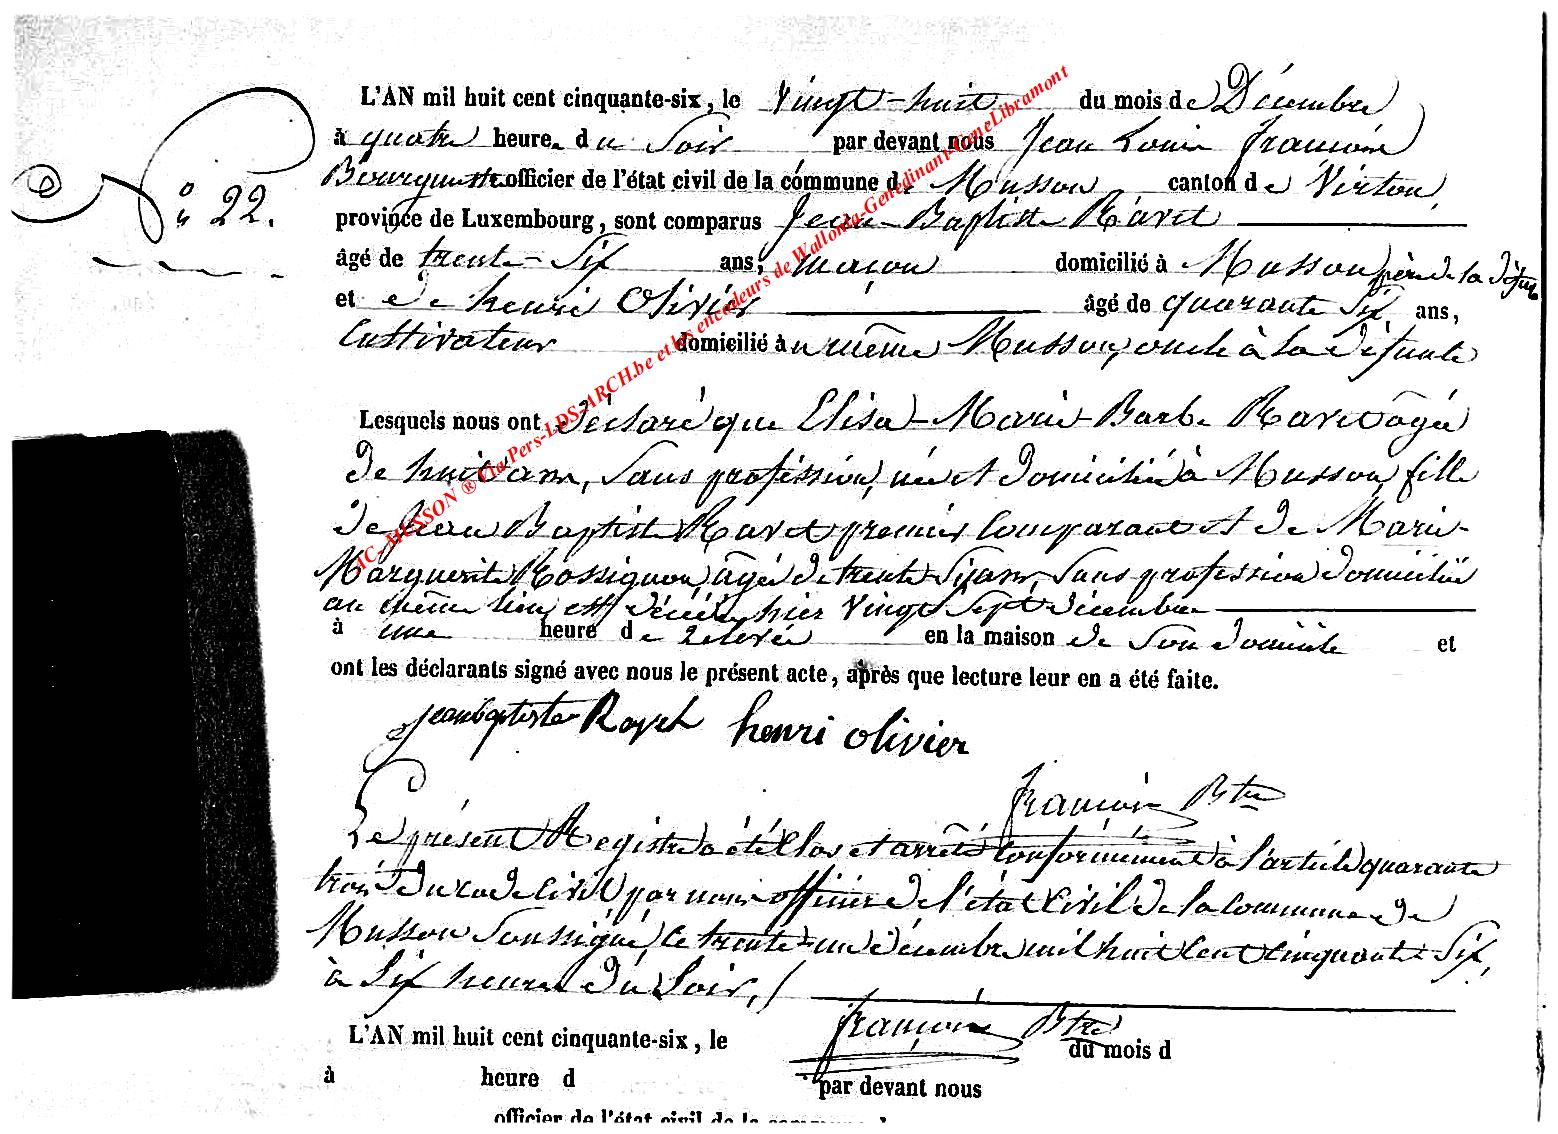 L'AN mil huit cent cinquante-six, le Vingt-huit du mois de Décembre
à quatre heures du Soir par devant nous Jean Louis François
Bourguestre officier de l'état civil de la commune de Musson canton de Virton,
N° 22.
province de Luxembourg, sont comparus Jean-Baptiste Ravet
âgé de trente-Six ans, maçon domicilié à Musson, père de la défunte
et de henri Olivier âgé de quarante Six ans,
Cultivateur domicilié au même Musson, oncle à la défunte
Lesquels nous ont déclaré que Elisa-Marie-Barbe Ravet âgée
de huit ans, Sans profession, née et domiciliée à Musson, fille
de Jean Baptiste Ravet premier Comparant et de Marie-
Marguerite Rossignon, âgée de trente Six ans, Sans profession domiciliée
au même lieu, est décédée hier Vingt Sept décembre
à une heure de relevée en la maison de Son domicile et
ont les déclarants signé avec nous le présent acte, après que lecture leur en a été faite.
jeanbaptiste Ravet henri olivier
François Btre
Le présent Registre a été Clos et arrêté Conformément à l'article quarante
trois du code Civil par nous officier de l'état Civil de la Commune de
Musson Soussigné, ce trente-un décembre mil huit Cent Cinquante-Six,
à Six heures du Soir, /
François Btre
L'AN mil huit cent cinquante-six, le du mois d
à heure d par devant nous
officier de l'état civil de la commune d
IC-MUSSON ® Via Pers-LDS-ARCH.be et les encodeurs de Wallonia-Genedinant-GeneLibramont